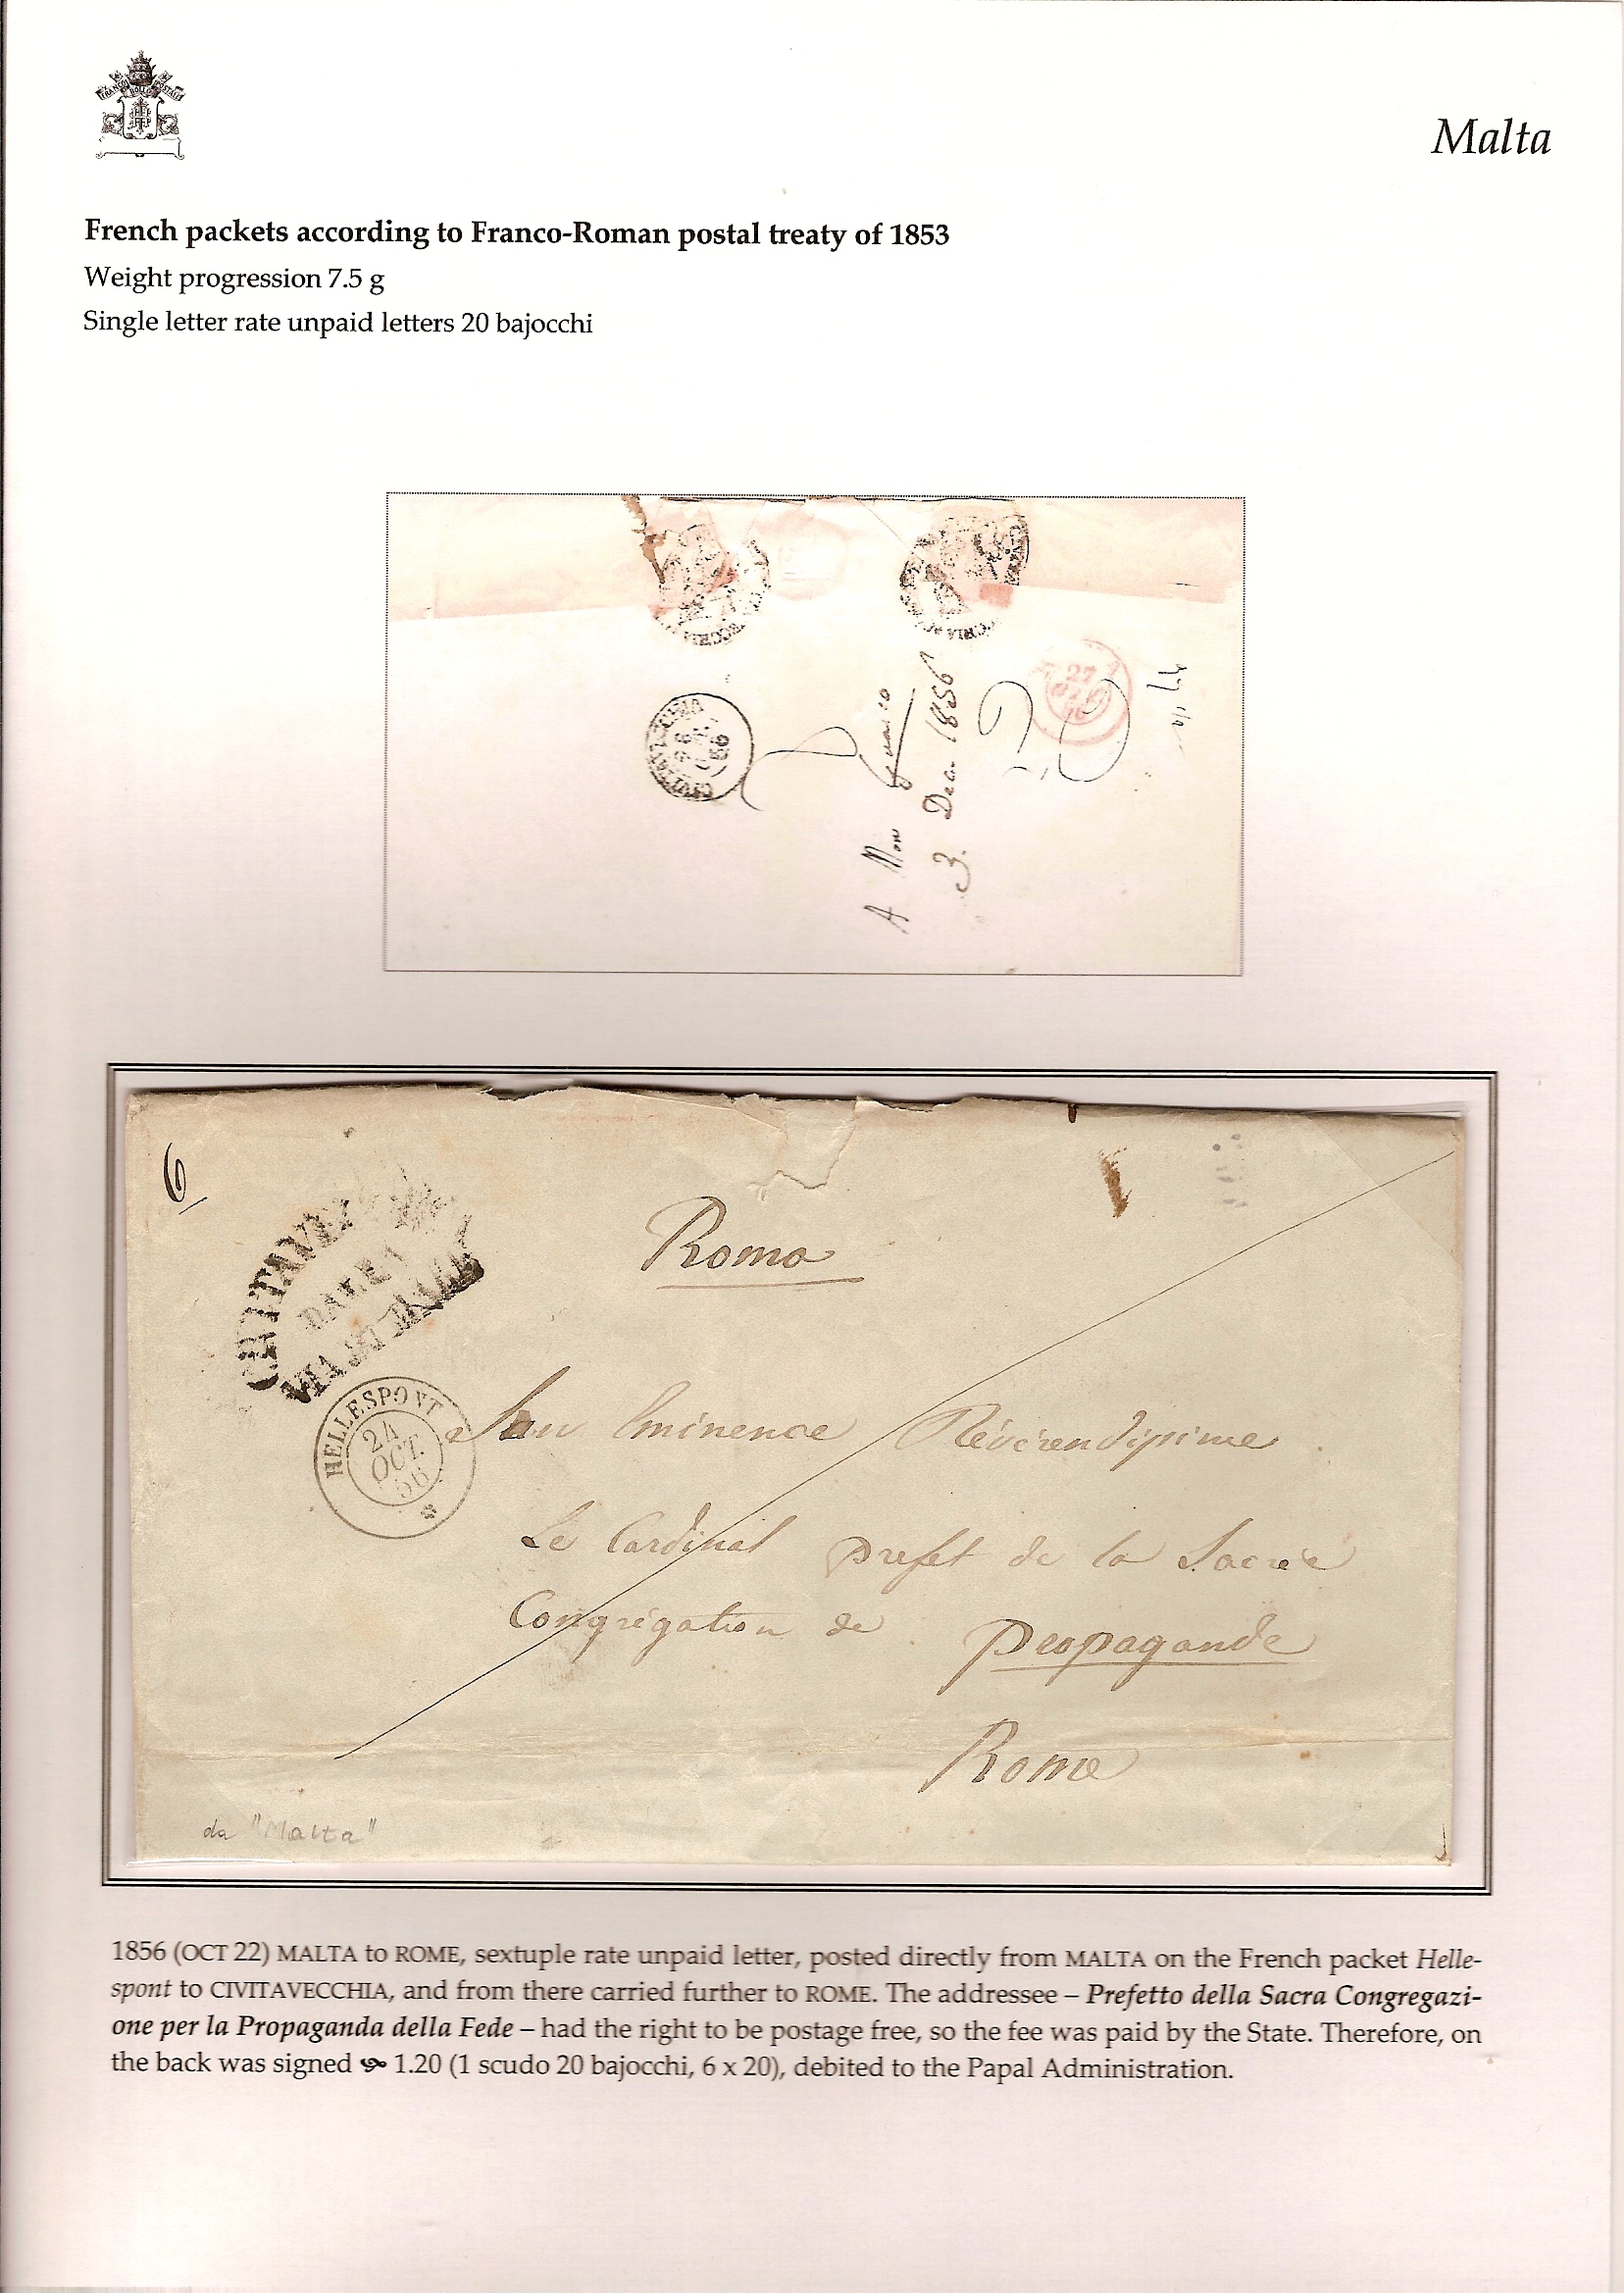 Malta
French packets according to Franco-Roman postal treaty of 1853
Weight progression 7.5 g
Single letter rate unpaid letters 20 bajocchi
3. Dec. 1856
27
6
Roma
HELLESPONT
24
OCT.
56
Son Eminence Révérendissime
Le Cardinal prefet de la Sacrée
Congrégation de Propagande
Rome
da "Malta"
1856 (OCT 22) MALTA to ROME, sextuple rate unpaid letter, posted directly from MALTA on the French packet Helle-
spont to CIVITAVECCHIA, and from there carried further to ROME. The addressee – Prefetto della Sacra Congregazi-
one per la Propaganda della Fede – had the right to be postage free, so the fee was paid by the State. Therefore, on
the back was signed 1.20 (1 scudo 20 bajocchi, 6 x 20), debited to the Papal Administration.